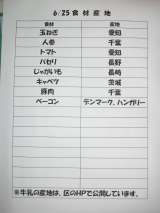 6/25 食材産地
食材 産地
玉ねぎ 愛知
人参 千葉
トマト 愛知
パセリ 長野
じゃがいも 長崎
キャベツ 茨城
豚肉 千葉
ベーコン デンマーク、ハンガリー
※牛乳の産地は、区のHPで公開しています。